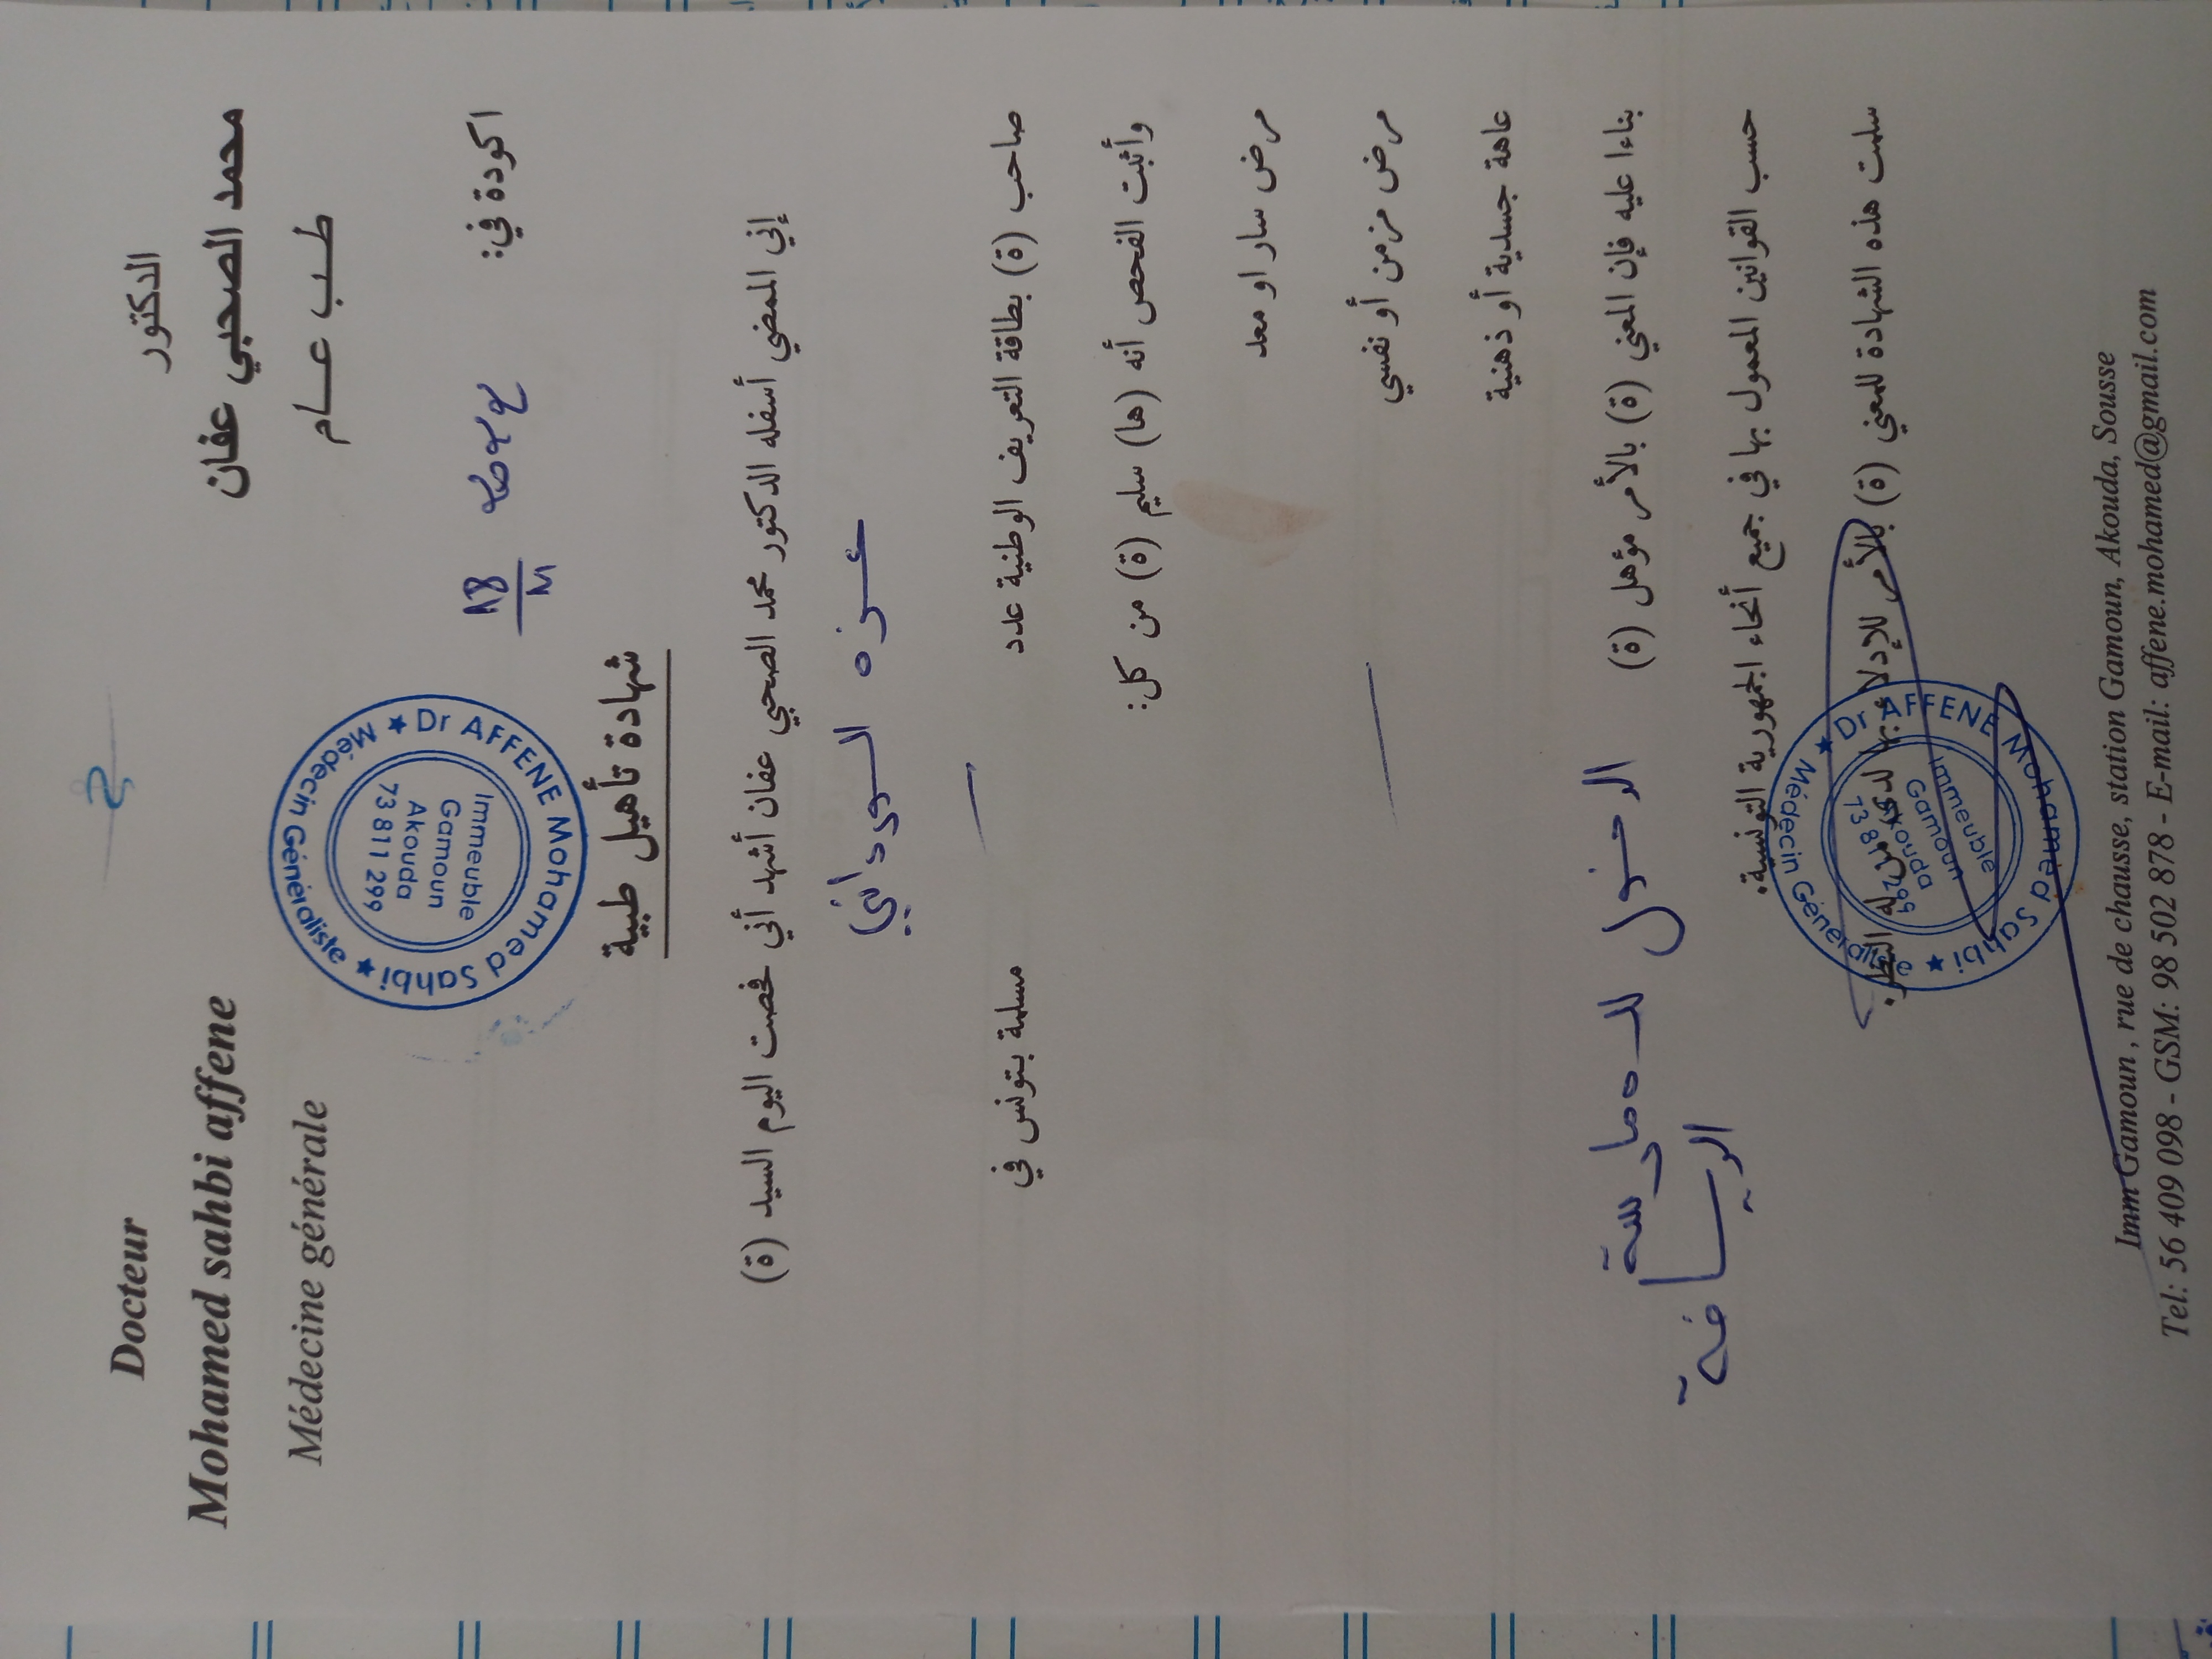 Docteur
الدكتور
Mohamed sahbi affene
محمد الصحبي عفان
Médecine générale
طب عام
اكودة في:
★ Dr AFFENE Mohamed Sahbi ★ Médecin Généraliste
Immeuble
Gamoun
Akouda
73 811 299
شهادة تأهيل طبية
إني الممضي أسفله الدكتور محمد الصحبي عفان أشهد أني فحصت اليوم السيد (ة)
عزه السوداني
صاحب (ة) بطاقة التعريف الوطنية عدد مسلمة بتونس في
وأثبت الفحص أنه (ها) سليم (ة) من كل:
مرض سار او معد
مرض مزمن أو نفسي
عاهة جسدية أو ذهنية
بناءا عليه فإن المعني (ة) بالأمر مؤهل (ة)
الرياضة
حسب القوانين المعمول بها في جميع أنحاء الجمهورية التونسية.
سلمت هذه الشهادة للمعني (ة) بالأمر للإدلاء بها لدى من له النظر.
★ Dr AFFENE Mohamed Sahbi ★ Médecin Généraliste
Immeuble
Gamoun
Akouda
73 811 299
Imm Gamoun , rue de chausse, station Gamoun, Akouda, Sousse
Tel: 56 409 098 - GSM: 98 502 878 - E-mail: affene.mohamed@gmail.com